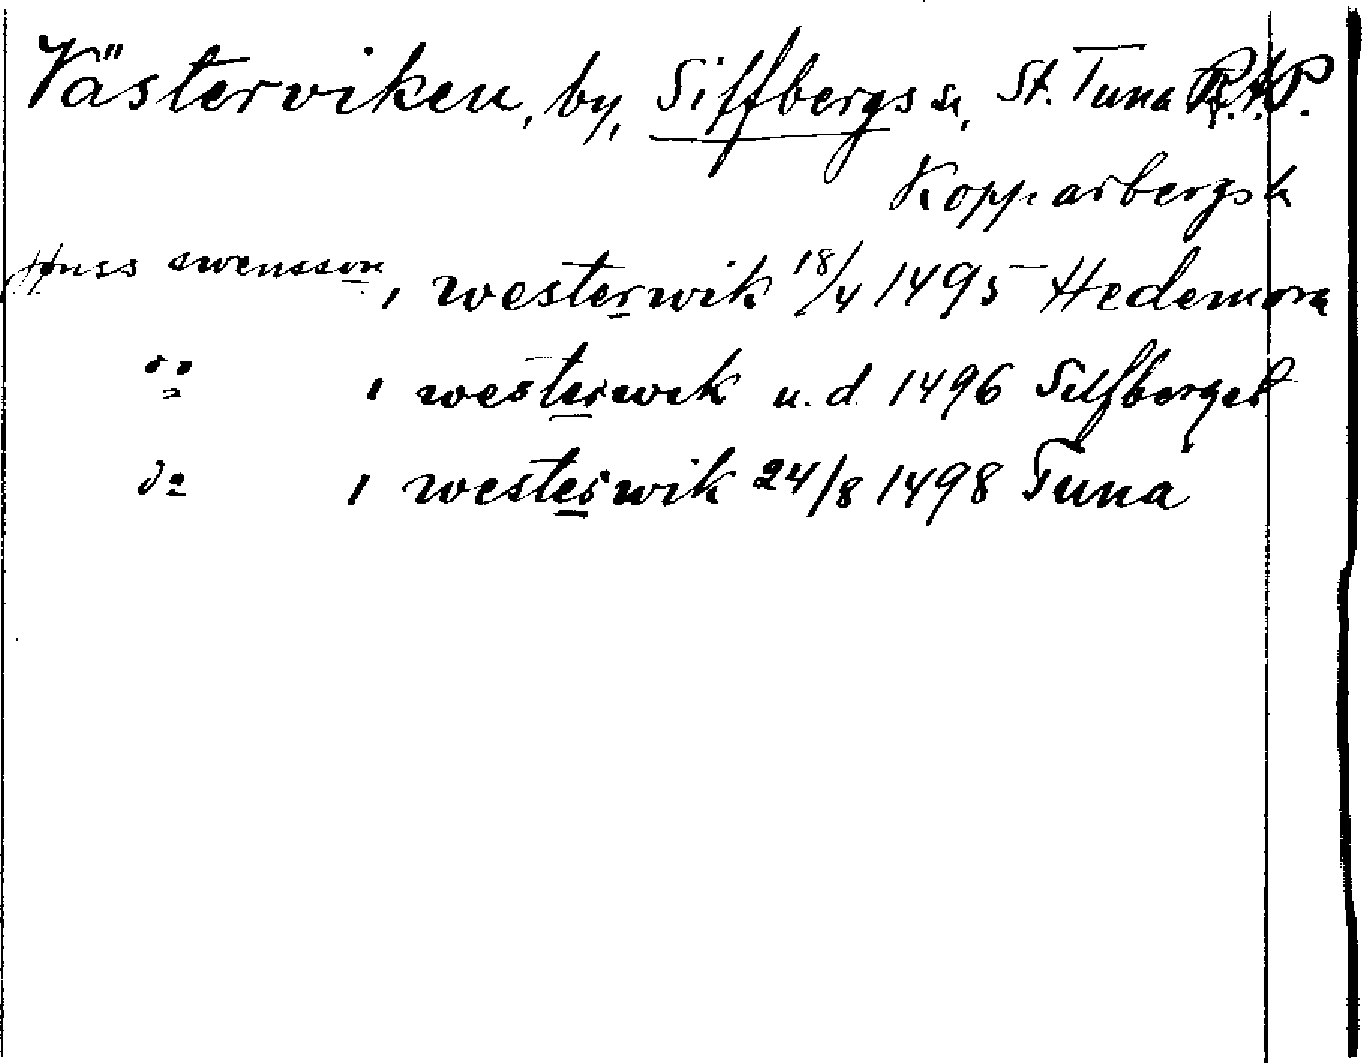 Västerviken, by, Silfbergs sn, St. Tuna R.A.P.
Kopparbergs l
swensson i westerwik 18/4 1495 Hedemora
do i westerwik u.d. 1496 Silfberget
do i westerwik 24/8 1498 Tuna